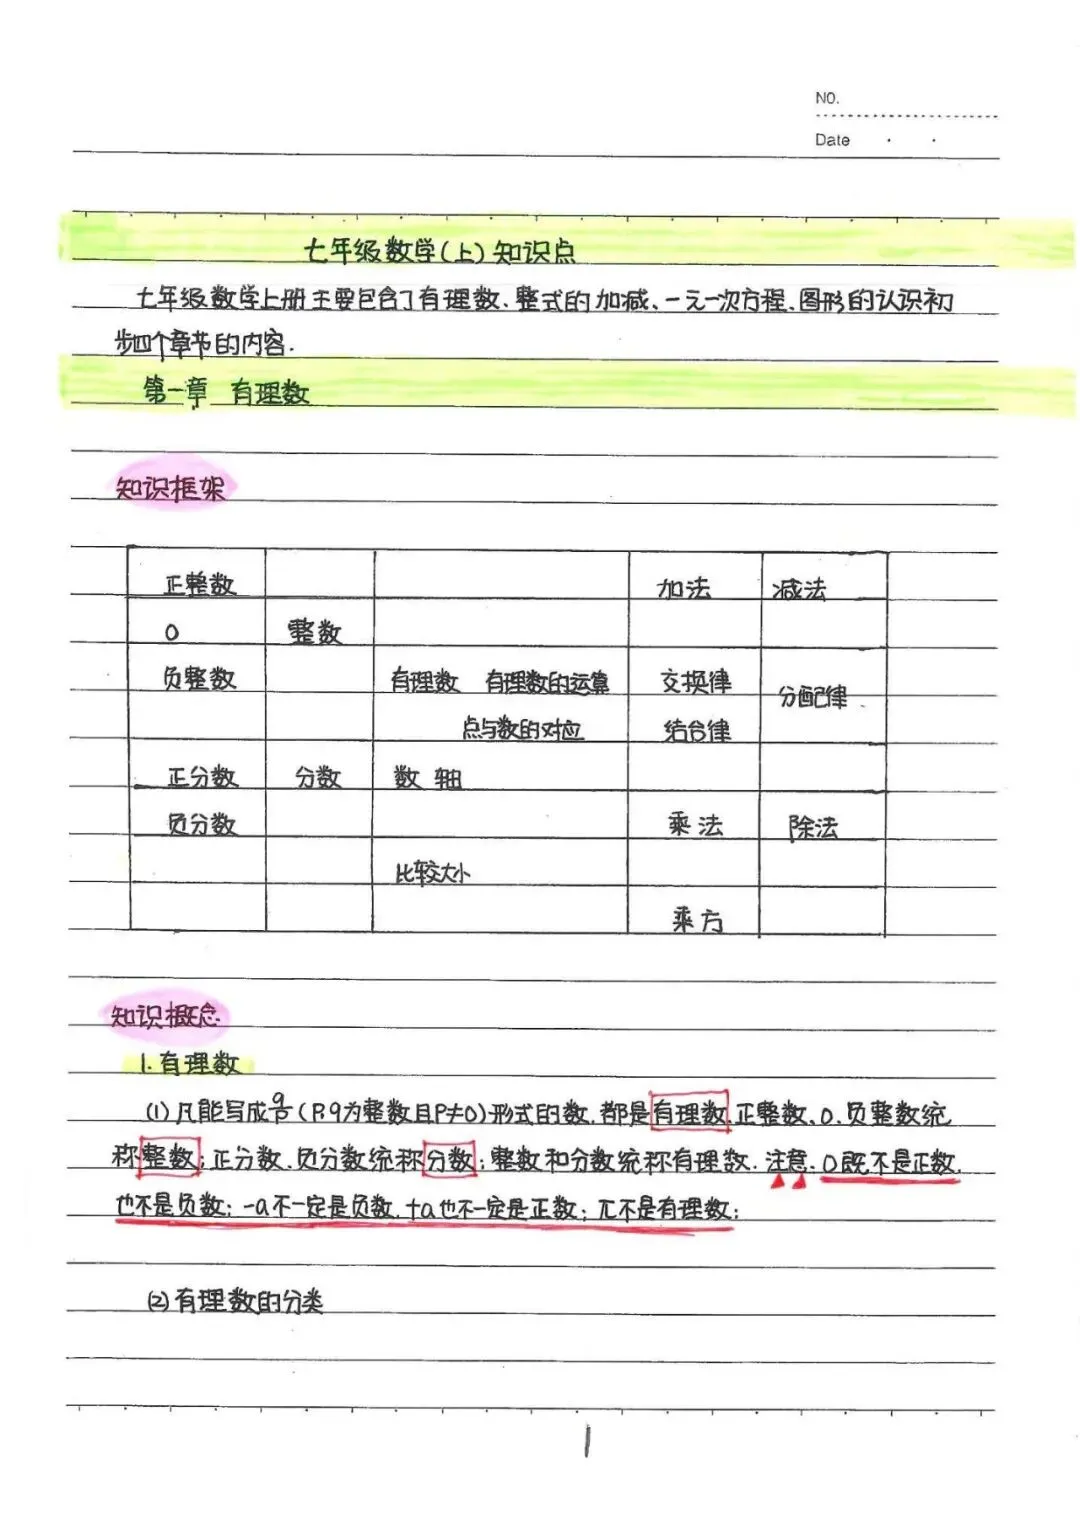 NO.
Date
七年级数学(上)知识点
七年级数学上册主要包含了有理数、整式的加减、一元一次方程、图形的认识初
步四个章节的内容.
第一章 有理数
知识框架
正整数 加法 减法
0 整数
负整数 有理数 有理数的运算 交换律 分配律
点与数的对应 结合律
正分数 分数 数轴
负分数 乘法 除法
比较大小
乘方
知识概念
1.有理数
(1)凡能写成 (P,q为整数且P≠0)形式的数,都是有理数,正整数、0、负整数统
称整数;正分数、负分数统称分数;整数和分数统称有理数.注意:0既不是正数,
也不是负数;-a不一定是负数,+a也不一定是正数;π不是有理数;
(2)有理数的分类
1